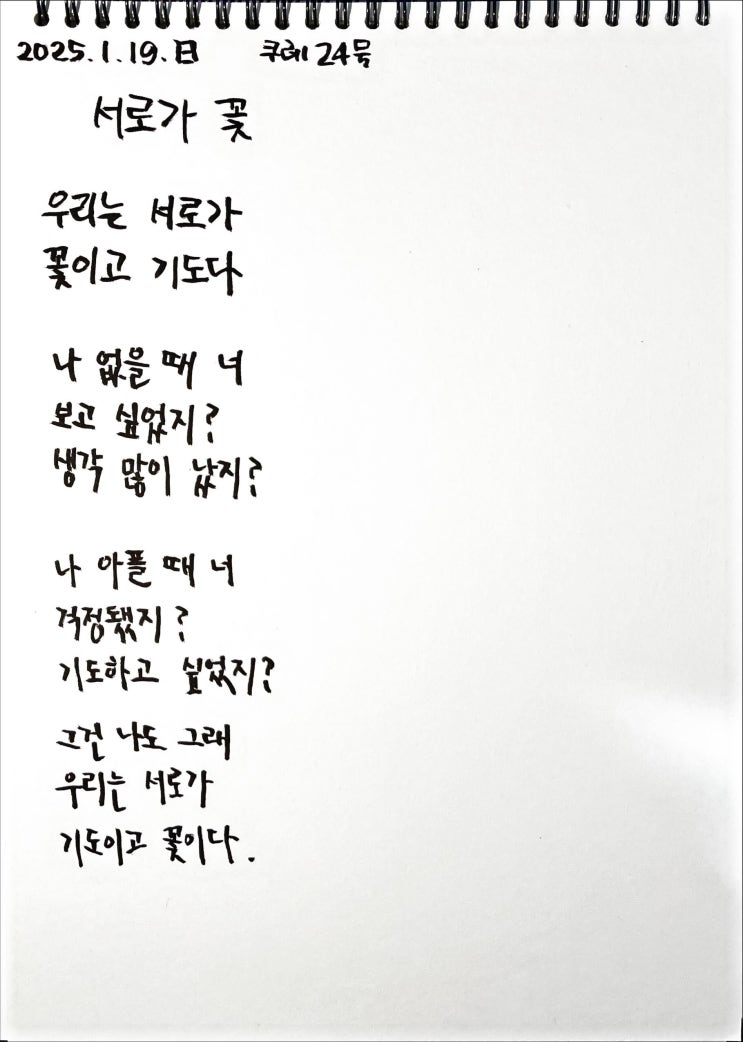 2025.1.19.日 쿠레 24묵
서로가 꽃
우리는 서로가
꽃이고 기도다
나 없을 때 너
보고 싶었지?
생각 많이 났지?
나 아플 때 너
걱정됐지?
기도하고 싶었지?
그건 나도 그래
우리는 서로가
기도이고 꽃이다.